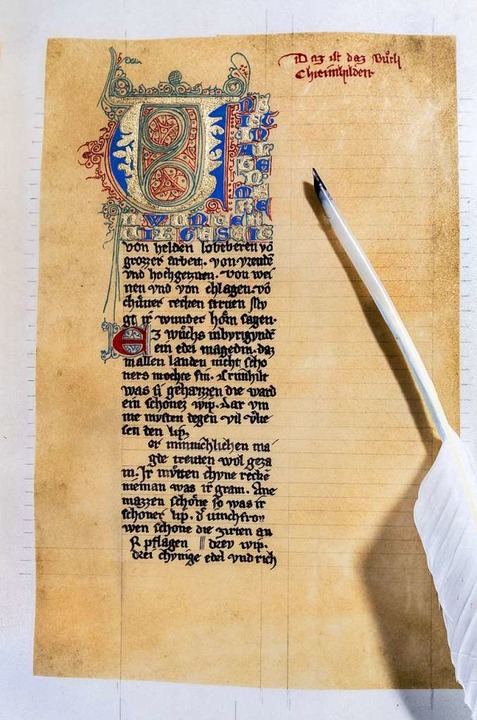 Daz ist daz Buch
Chreimhilden
UNS
IST
IN AL
TEN
MÆRE
N W
VNDERS
VIL GESEIT
von helden lobeberen võ
grozzer arbeit. von vreude
vnd hochgeziten. von wei
nen vnd von chlagen. võ
chůner recken striten
gt ir wunder hörn sagen.
Ez wůchs in byrigynde
ein edel magedin. daz
in allen landen nicht scho
ners mochte sin. Crimhilt
was si geheizzen die ward
ein schonez wip. dar vm
me mysten degen vil vlie
sen den lip.
er minnichlichen ma
gde treuten wol geza
m. Ir mvten chyne recke
nieman was ir gram. Ane
mazzen schone so was ir
schoner lip. d' iunchfrow
wen schone die zirten an
R pflagen drey wip.
drei chynige edel vnd rich